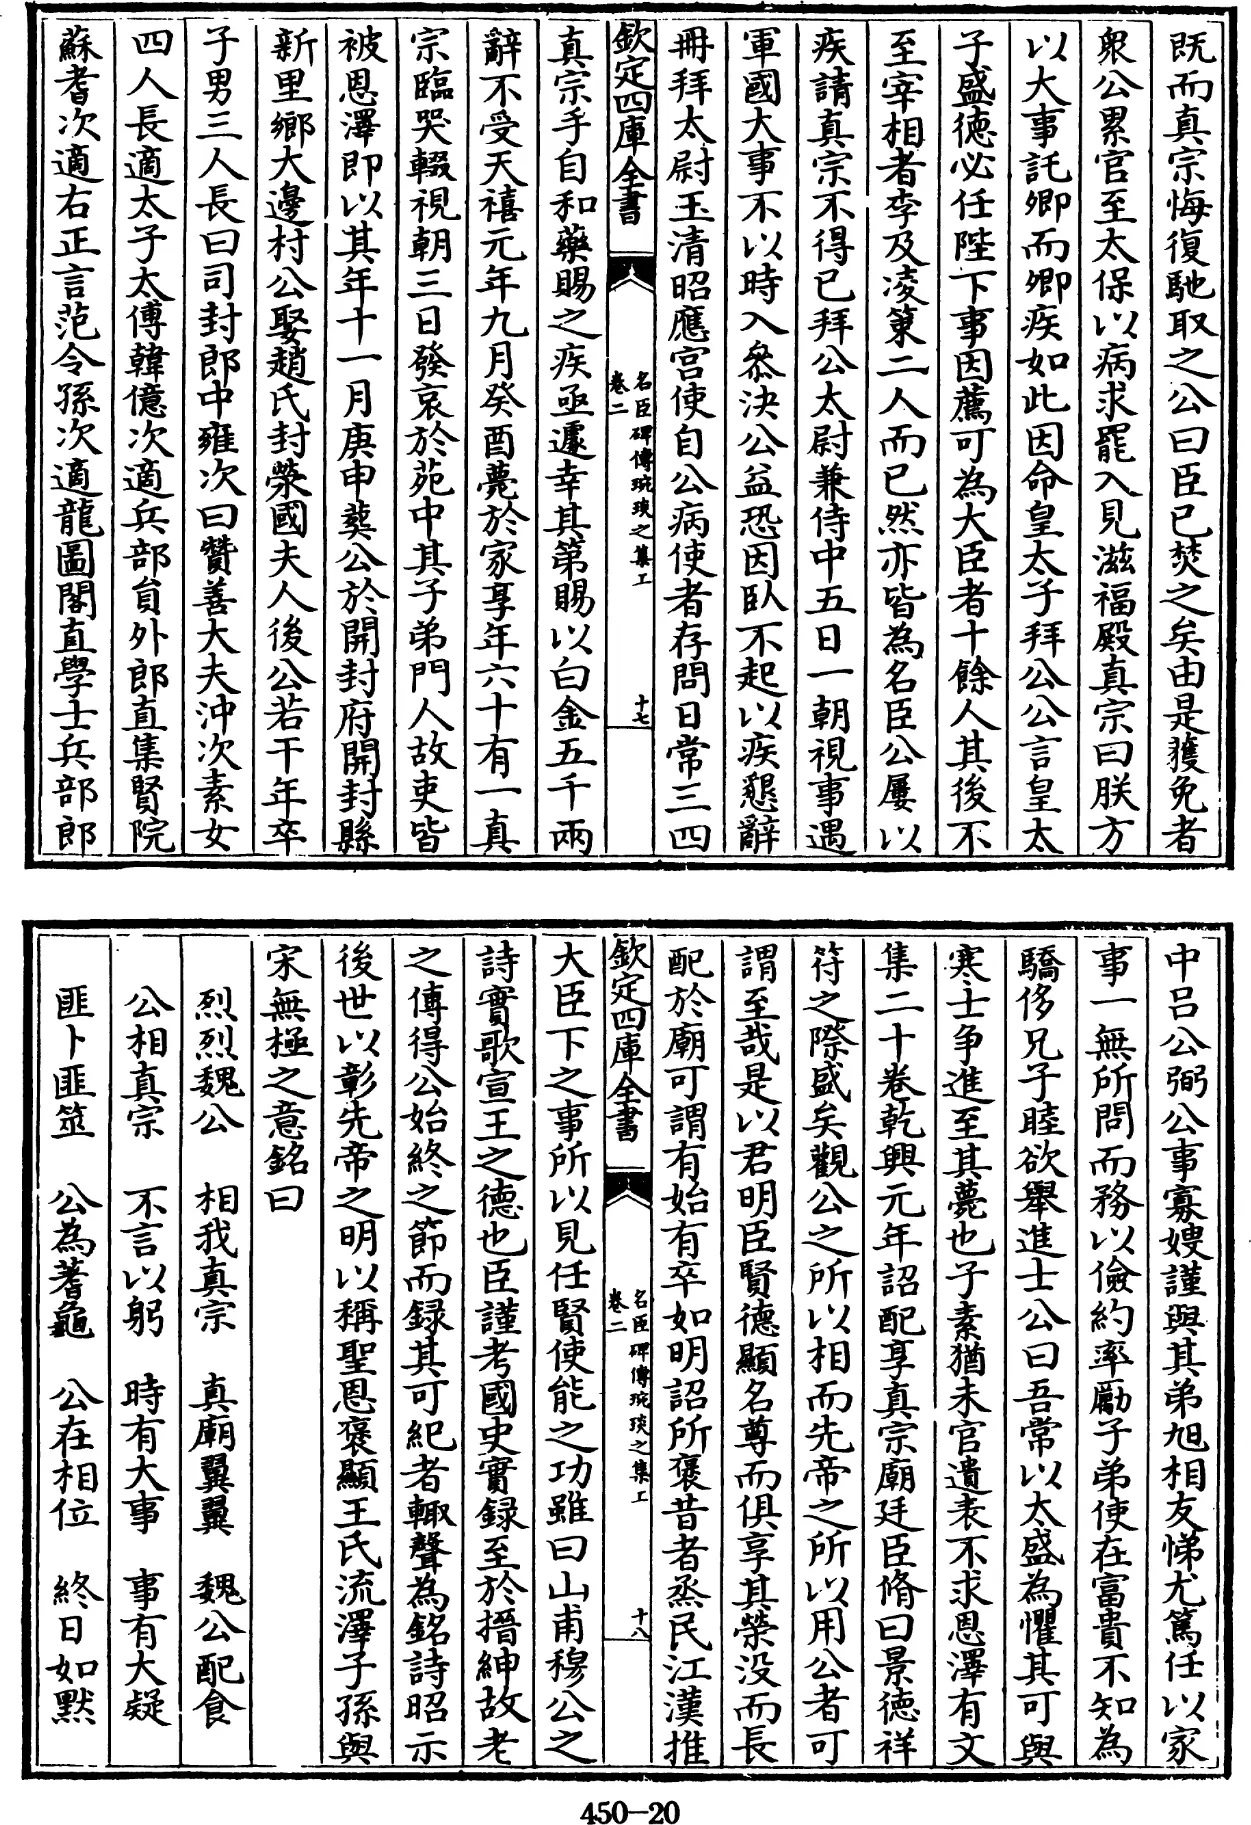 既而真宗悔復馳取之公曰臣已焚之矣由是獲免者
衆公累官至太保以病求罷入見滋福殿真宗曰朕方
以大事託卿而卿疾如此因命皇太子拜公公言皇太
子盛徳必任陛下事因薦可為大臣者十餘人其後不
至宰相者李及凌䇿二人而已然亦皆為名臣公屢以
疾請真宗不得已拜公太尉兼侍中五日一朝視事遇
軍國大事不以時入叅決公益恐因臥不起以疾懇辭
冊拜太尉玉清昭應宫使自公病使者存問日常三四
欽定四庫全書
名臣碑傳琬琰之集上
卷二
十七
真宗手自和藥賜之疾亟遽幸其第賜以白金五千兩
辭不受天禧元年九月癸酉薨於家享年六十有一真
宗臨哭輟視朝三日發哀於苑中其子弟門人故吏皆
被恩澤即以其年十一月庚申葬公於開封府開封縣
新里鄉大邊村公娶趙氏封榮國夫人後公若干年卒
子男三人長曰司封郎中雍次曰贊善大夫沖次素女
四人長適太子太傅韓億次適兵部員外郎直集賢院
蘇耆次適右正言范令孫次適龍圖閣直學士兵部郎
中呂公弼公事寡嫂謹與其弟旭相友悌尤篤任以家
事一無所問而務以儉約率勵子弟使在富貴不知為
驕侈兄子睦欲舉進士公曰吾常以太盛為懼其可與
寒士争進至其薨也子素猶未官遺表不求恩澤有文
集二十卷乾興元年詔配享真宗廟廷臣脩曰景徳祥
符之際盛矣觀公之所以相而先帝之所以用公者可
謂至哉是以君明臣賢徳顯名尊而俱享其榮没而長
配於廟可謂有始有卒如明詔所褒昔者烝民江漢推
欽定四庫全書
名臣碑傳琬琰之集上
卷二
十八
大臣下之事所以見任賢使能之功雖曰山甫穆公之
詩實歌宣王之徳也臣謹考國史實録至於搢紳故老
之傳得公始終之節而録其可紀者輙聲為銘詩昭示
後世以彰先帝之明以稱聖恩褒顯王氏流澤子孫與
宋無極之意銘曰
烈烈魏公 相我真宗 真廟翼翼 魏公配食
公相真宗 不言以躬 時有大事 事有大疑
匪卜匪筮 公為蓍龜 公在相位 終日如黙
450-20